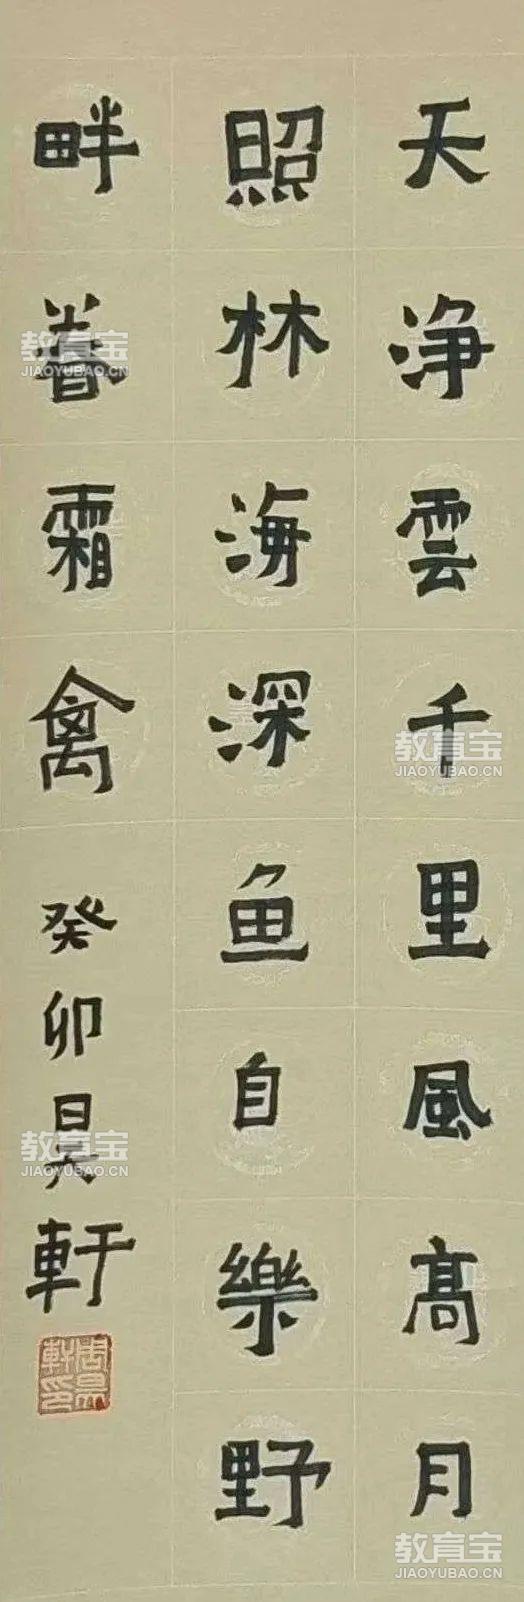 天浄雲千里風高月
照林海深鱼自樂野
畔霜禽
癸卯昊軒
周昊軒印
教育宝
JIAOYUBAO.CN
教育宝
JIAOYUBAO.CN
教育宝
JIAOYUBAO.CN
教育宝
JIAOYUBAO.CN